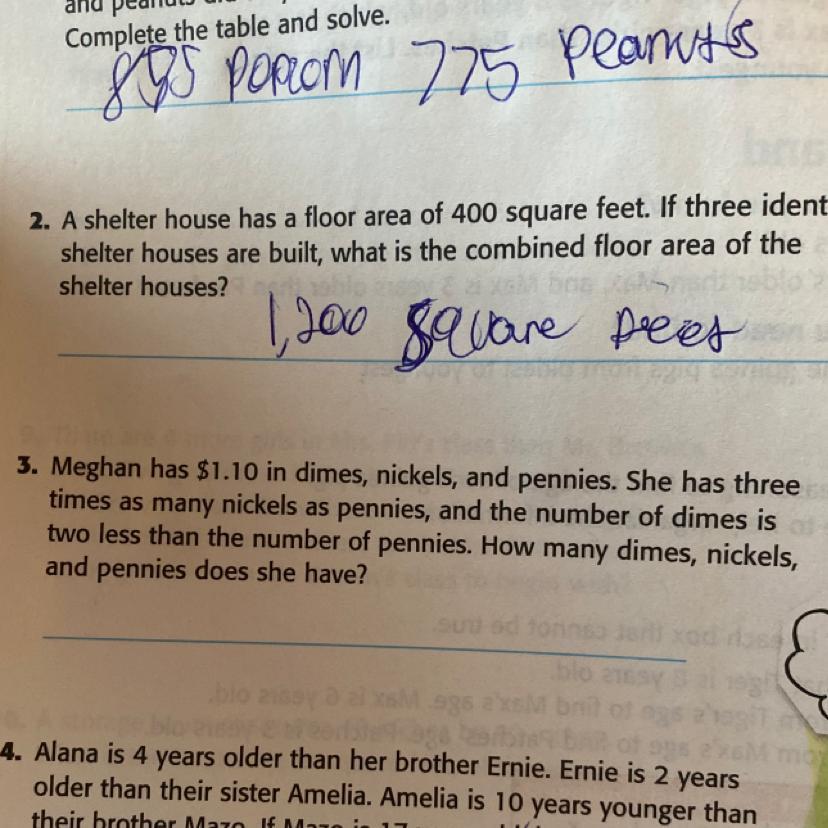 and peanuts
Complete the table and solve.
895 popcorn 775 Peanuts
2. A shelter house has a floor area of 400 square feet. If three ident
shelter houses are built, what is the combined floor area of the
shelter houses?
1,200 square feet
3. Meghan has $1.10 in dimes, nickels, and pennies. She has three
times as many nickels as pennies, and the number of dimes is
two less than the number of pennies. How many dimes, nickels,
and pennies does she have?
4. Alana is 4 years older than her brother Ernie. Ernie is 2 years
older than their sister Amelia. Amelia is 10 years younger than
their brother Mazo. If Mazo is 17